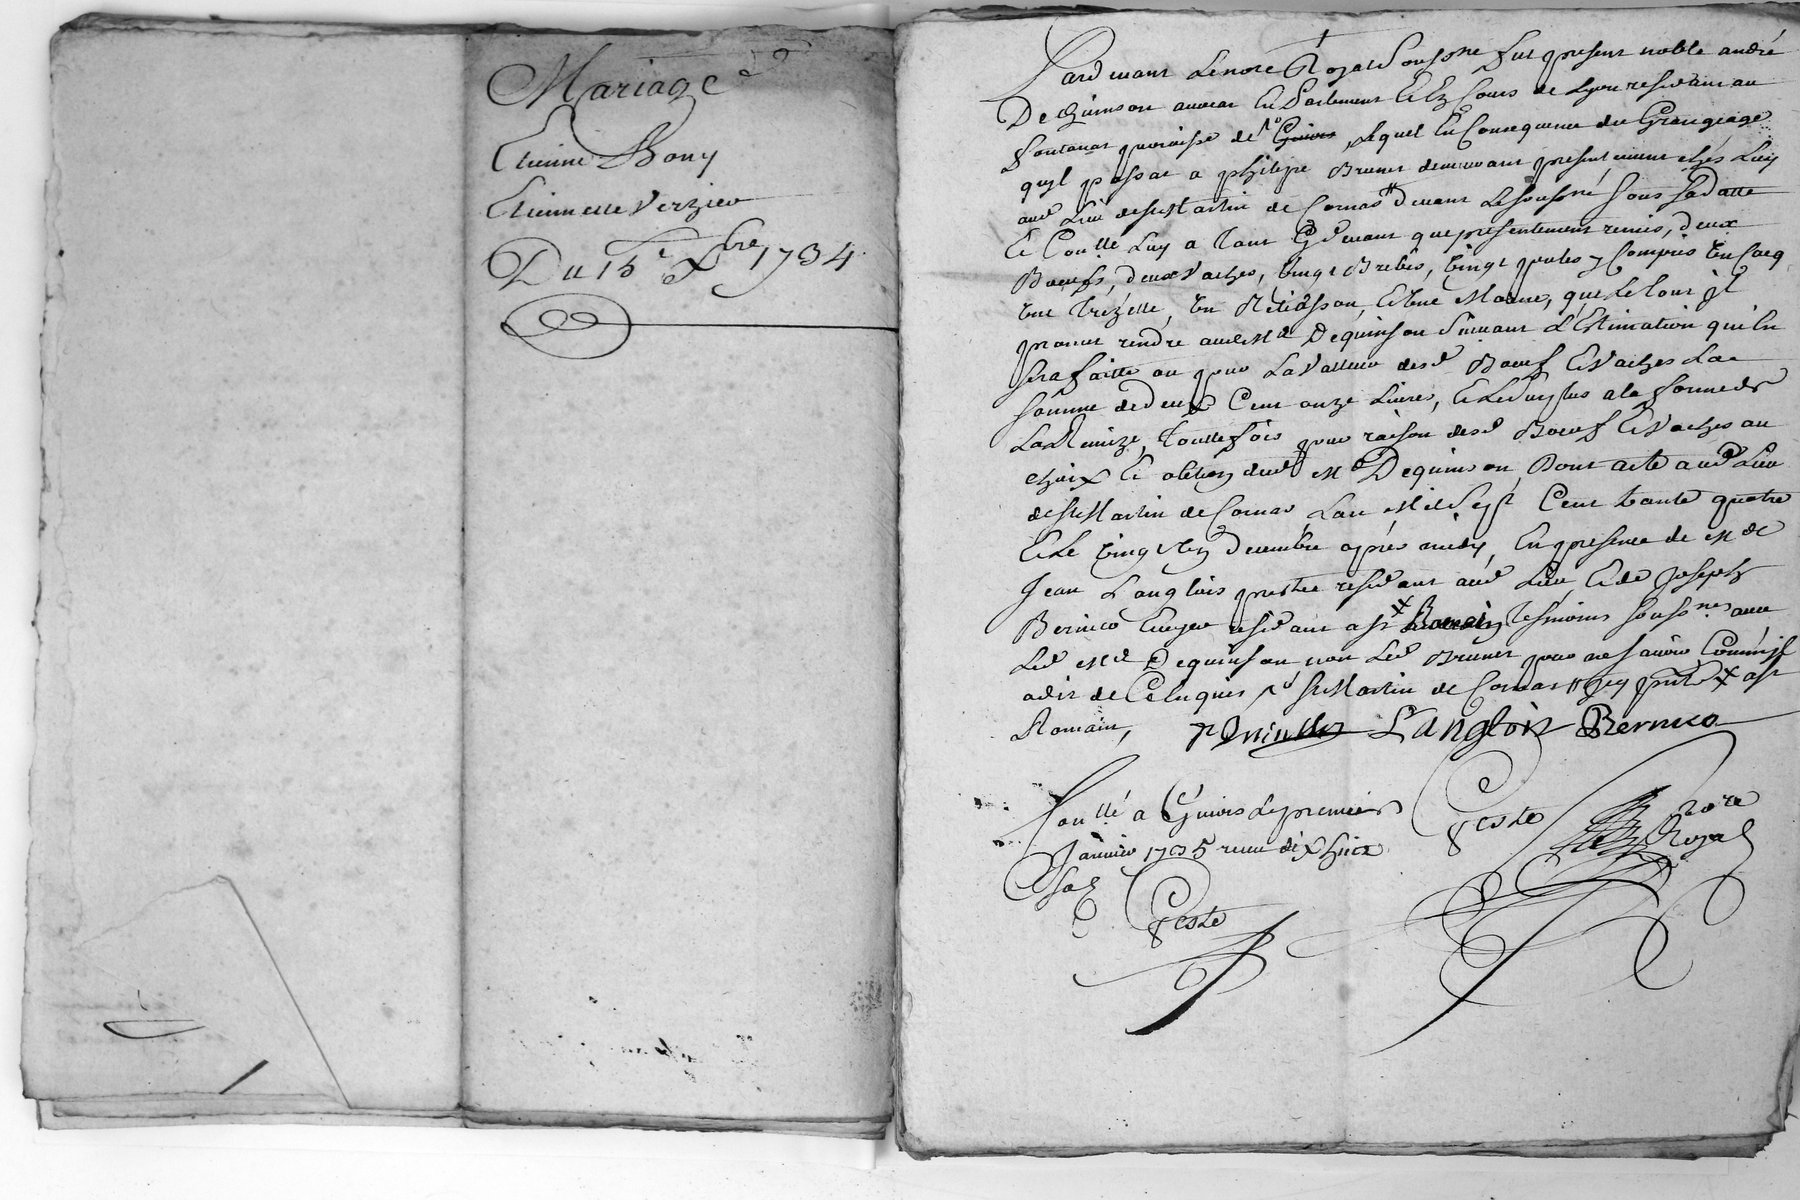 Mariage
Etienne Bony
Etiennette Verzieu
Du 15e Xbre 1734
Pardevant Le nore Royal Soussne fut present noble andré
De quinson avocat En Parlement Et Es Cours de Lyon residant au
fontanas parroisse de Givors, Lequel En Consequence du Grangeage
quyl passat a philipe Brunet demeurant presentement chés Luy
aud Lieu de St Martin de Cornas devant Le soussné sous sa datte
Et Conllé Luy a tant Cy devant que presentement remis, deux
Boeufs, deux vaches, vingt Brebis, vingt poules y Compris Un Cocq
Une Une Mome, que Le tout Il
promet rendre aud Mr Dequinson suivant L'Estimation qui En
sera faitte ou pour La Valleur desd Boeuf Et Vaches La
somme de deux Cent onze Livres, Et Le surplus a la forme de
La Remize, touttefois pour raison desd Boeuf Et Vaches au
choix Et obtion dud Mr Dequinson, Dont acte aud Lieu
de St Martin de Cornas, Lan Mil Sept Cent trante quatre
Et Le vingt Un decembre aprés midy, En presence de Mre
Jean Langlois prestre residant aud Lieu, Et de Joseph
Bernico residant a St Romain tesmoins soussnes avec
Led Mr Dequinson non Led Brunet pour ne sçavoir Comm'Il
a dit de Ce Enquis St Martin de Cornas a St
Romain,
Langlois Bernico
Conllé a Givors Le premier
Janvier 1735 receu dix huit
sols
Geste
Geste nore
Royal